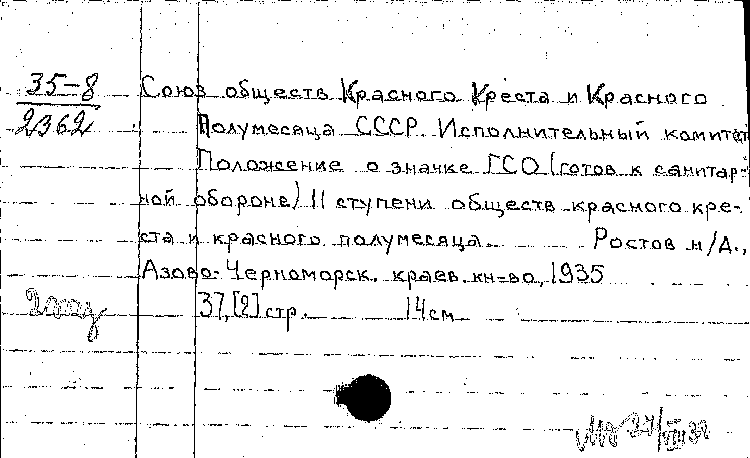 35-8
2362
Союз обществ Красного Креста и Красного
Полумесяца СССР. Исполнительный комитет
Положение о значке ГСО (готов к санитар-
ной обороне) II ступени обществ красного кре-
ста и красного полумесяца Ростов н/Д.,
Азово-Черноморск. краев. кн-во, 1935
37, [2] стр. 14 см